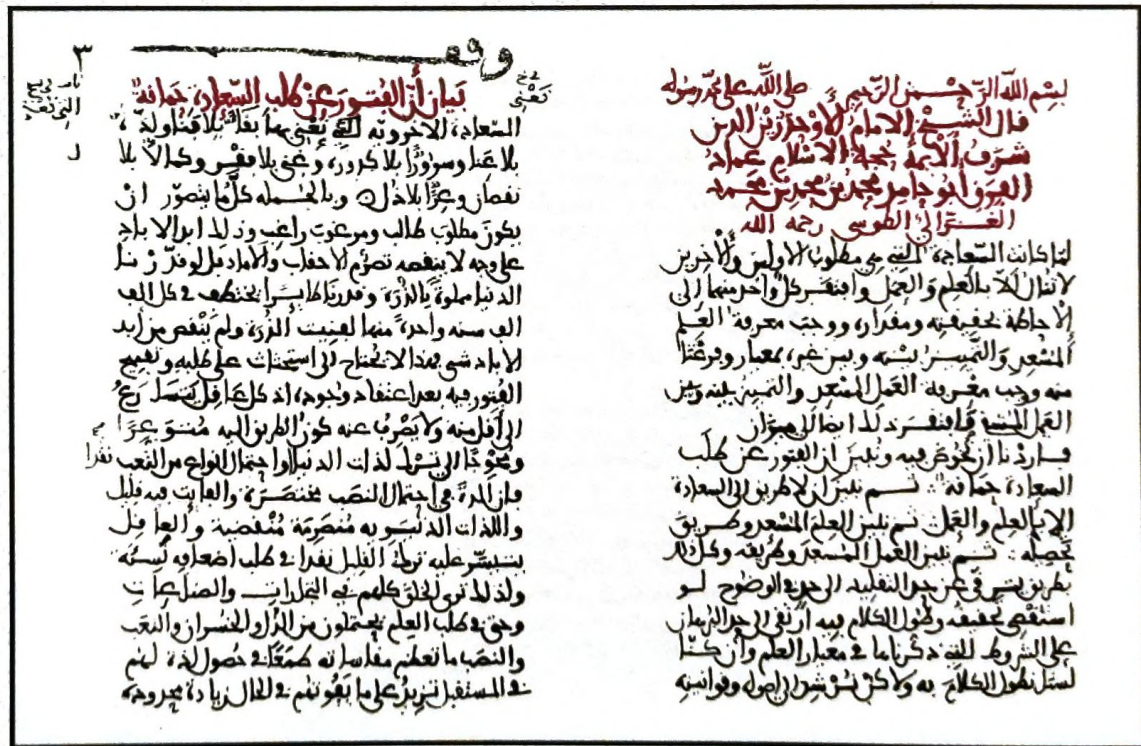 بسم الله الرحمن الرحيم صلى الله على محمد رسوله
قال الشيخ الامام الاوحد زين الدين
شرف الأئمة حجة الاسلام عماد
أبو حامد محمد بن محمد بن محمد
الغزالي الطوسي رحمه الله
لما كانت السعادة التي هي مطلوب الاولين والآخرين
لا تنال الا بالعلم والعمل وافتقر كل واحد منهما الى
الاحاطة بحقيقته ومقداره ووجب معرفة العلم
المسعد والتمييز بينه وبين غيره بمعيار وفرغنا
منه وجب معرفة العمل المسعد والتمييز بينه وبين
العمل المشقي فافتقر ذلك ايضا الى ميزان
فأردنا ان نخوض فيه ونبين ان الفتور عن طلب
السعادة حماقة ثم نبين ان لا طريق الى السعادة
الا بالعلم والعمل ثم نبين العلم المسعد وطريق
تحصيله ثم نبين العمل المسعد وطريقه وكل ذلك
بطريق يترقى عن حد التقليد الى حد الوضوح لو
استقصى بحقيقته وطول الكلام فيه ارتقى الى حد البرهان
على الشروط التي ذكرناها في معيار العلم وان كنا
لسنا نطول الكلام به ولاكن نشير الى اصوله وقوانينه
وقف
٣
بيان أن الفتور عن طلب السعادة حماقة
السعادة الاخروية التي نعني بها بقاء بلا فناء ولذة
بلا عناء وسرورا بلا كدورة وغنى بلا فقر وكمالا بلا
نقصان وعزا بلا ذل وبالجملة كل ما يتصور ان
يكون مطلوب طالب ومرغوب راغب وذلك ابد الاباد
على وجه لا ينقصه تصرم الاحقاب والآماد بل لو قدرنا
الدنيا مملوة بالذرة وقدرنا طايرا يختطف في كل الف
الف سنه واحدة منها لفنيت الذرة ولم ينقص من أبد
الاباد شي فهذا لا يحتاج الى استحثاث على طلبه وتقبيح
الفتور فيه بعد اعتقاد وجوده اذ كل عاقل يتسارع
الى أقل منه ولا يصرف عنه كون الطريق اليه متوعرا
ومحوجا الى ترك لذات الدنيا واحتمال انواع من التعب
فان المدة في احتمال النصب مختصرة والفايت فيه قليل
واللذات الدنيوية منصرمة منقضية والعاقل
يتيسر عليه ترك القليل نقدا في طلب اضعافه نسية
ولذلك ترى الخلق كلهم في التجارات والصناعات
وحتى في طلب العلم يحتملون من الذل والخسران والتعب
والنصب ما تعظم مقاساته طمعا في حصول لذة لهم
في المستقبل تزيد على ما يفوتهم في الحال زيادة محدودة